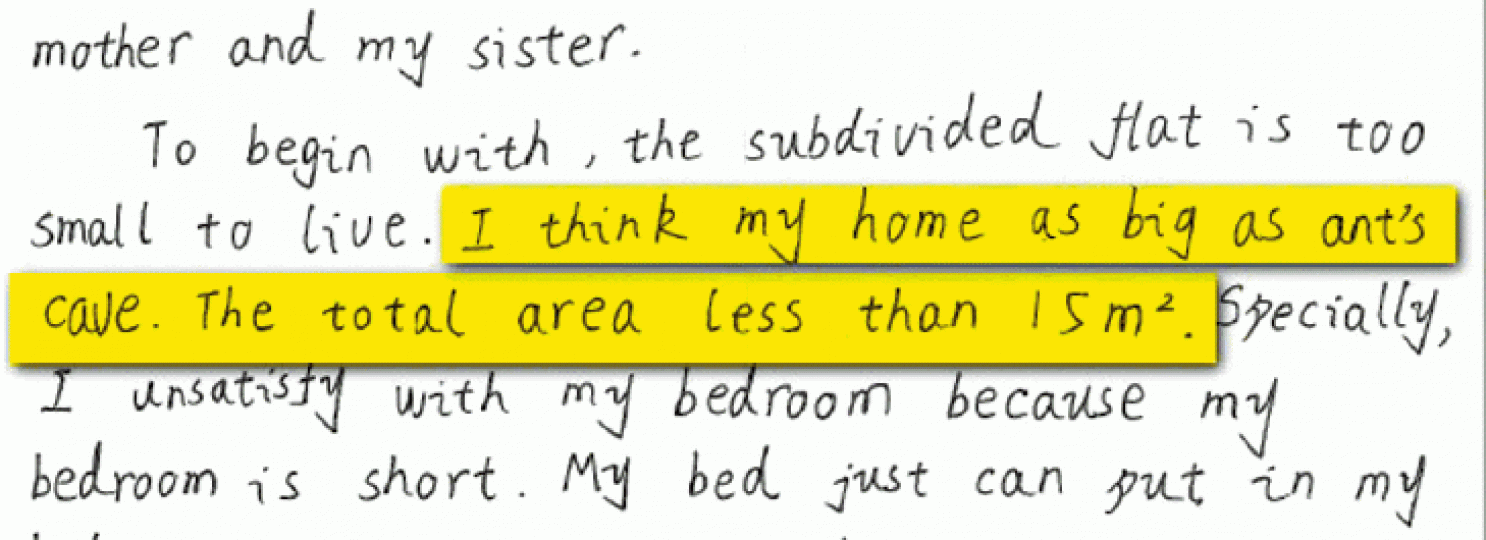 mother and my sister.
To begin with, the subdivided flat is too
small to live. I think my home as big as ant's
cave. The total area less than 15m².Specially,
I unsatisfy with my bedroom because my
bedroom is short. My bed just can put in my